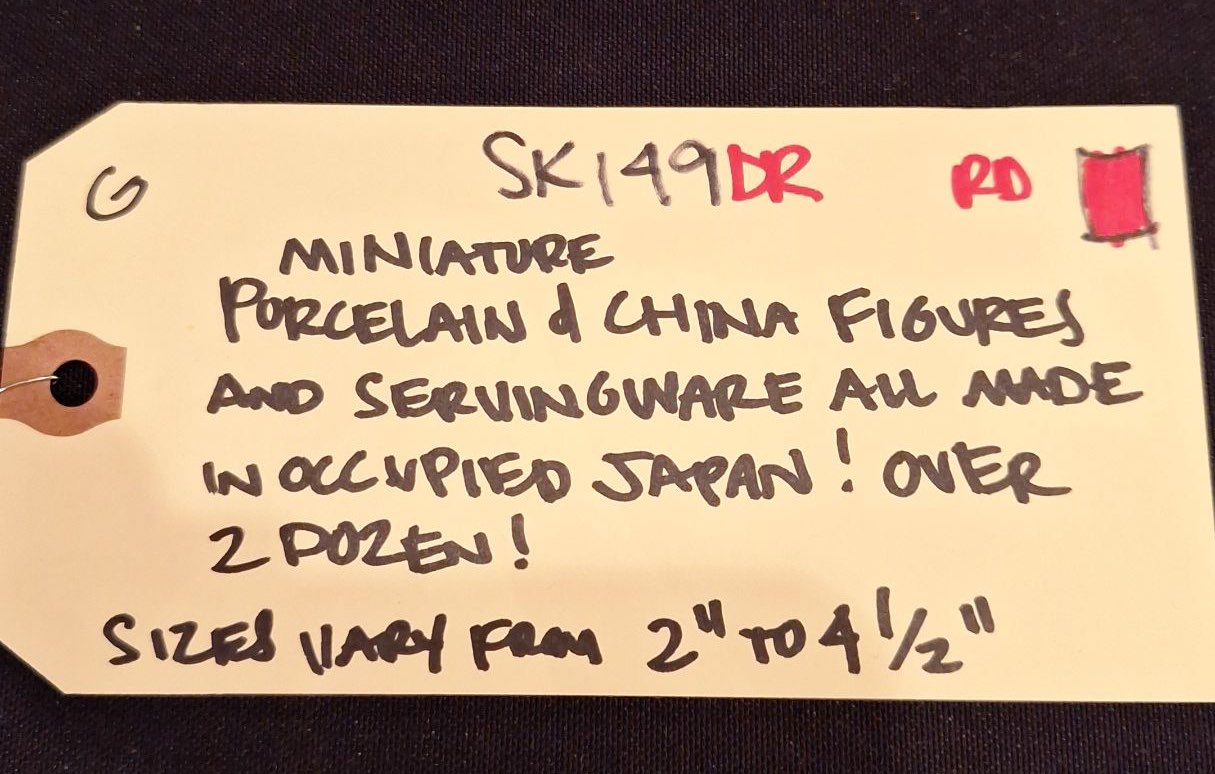 G SK149DR RD
MINIATURE
PORCELAIN & CHINA FIGURES
AND SERVINGWARE ALL MADE
IN OCCUPIED JAPAN! OVER
2 DOZEN!
SIZES VARY FROM 2" TO 4 1/2"